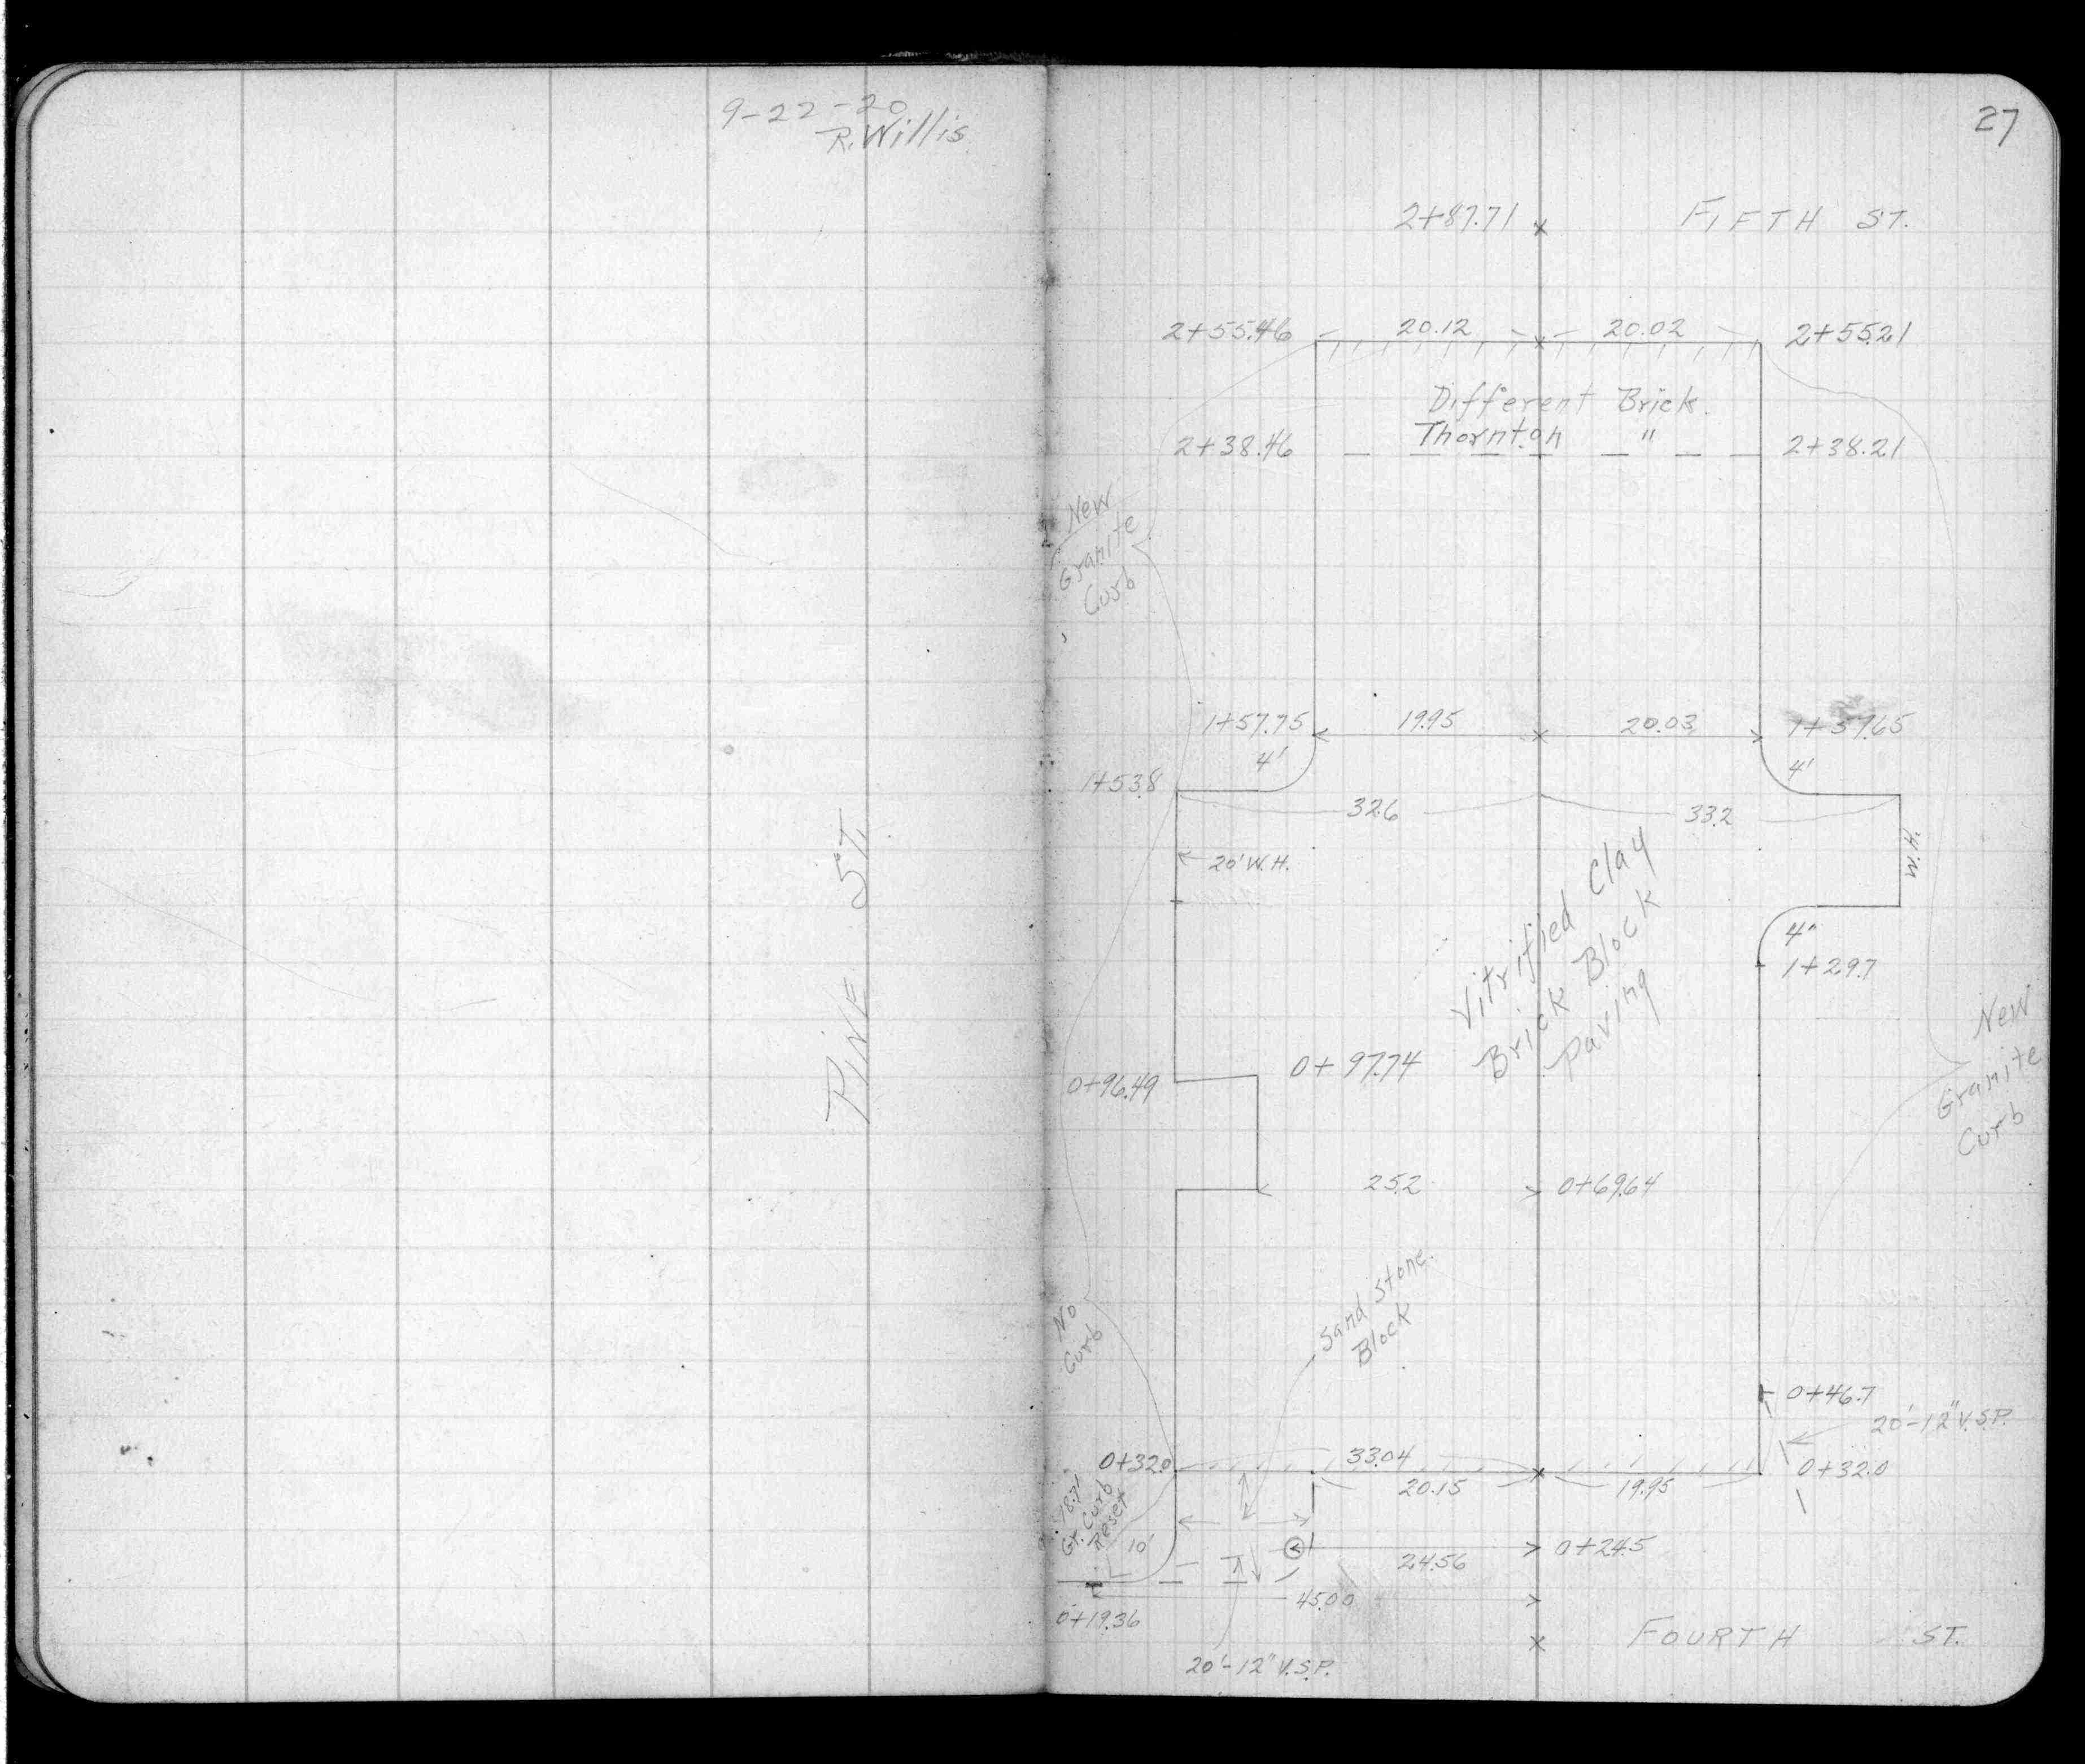 9-22-20
R. Willis
PINE ST.
27
2+87.71 FIFTH ST.
2+55.46 20.12 20.02 2+55.21
Different Brick.
Thornton "
2+38.46 2+38.21
New
Granite
Curb
1+57.75 19.95 20.03 1+57.65
4' 4'
1+53.8 32.6 33.2
20' W.H.
W.H.
4"
1+29.7
Vitrified Clay
Brick Block
Paving
New
Granite
Curb
0+96.49 0+97.74
25.2 0+69.64
Sand Stone
Block
No
Curb
0+46.7
20'-12" V.S.P.
0+32.0 33.04 0+32.0
20.15 19.95
18.71
Gr. Curb
Reset
10'
24.56 0+24.5
45.00
0+19.36
FOURTH ST.
20'-12" V.S.P.